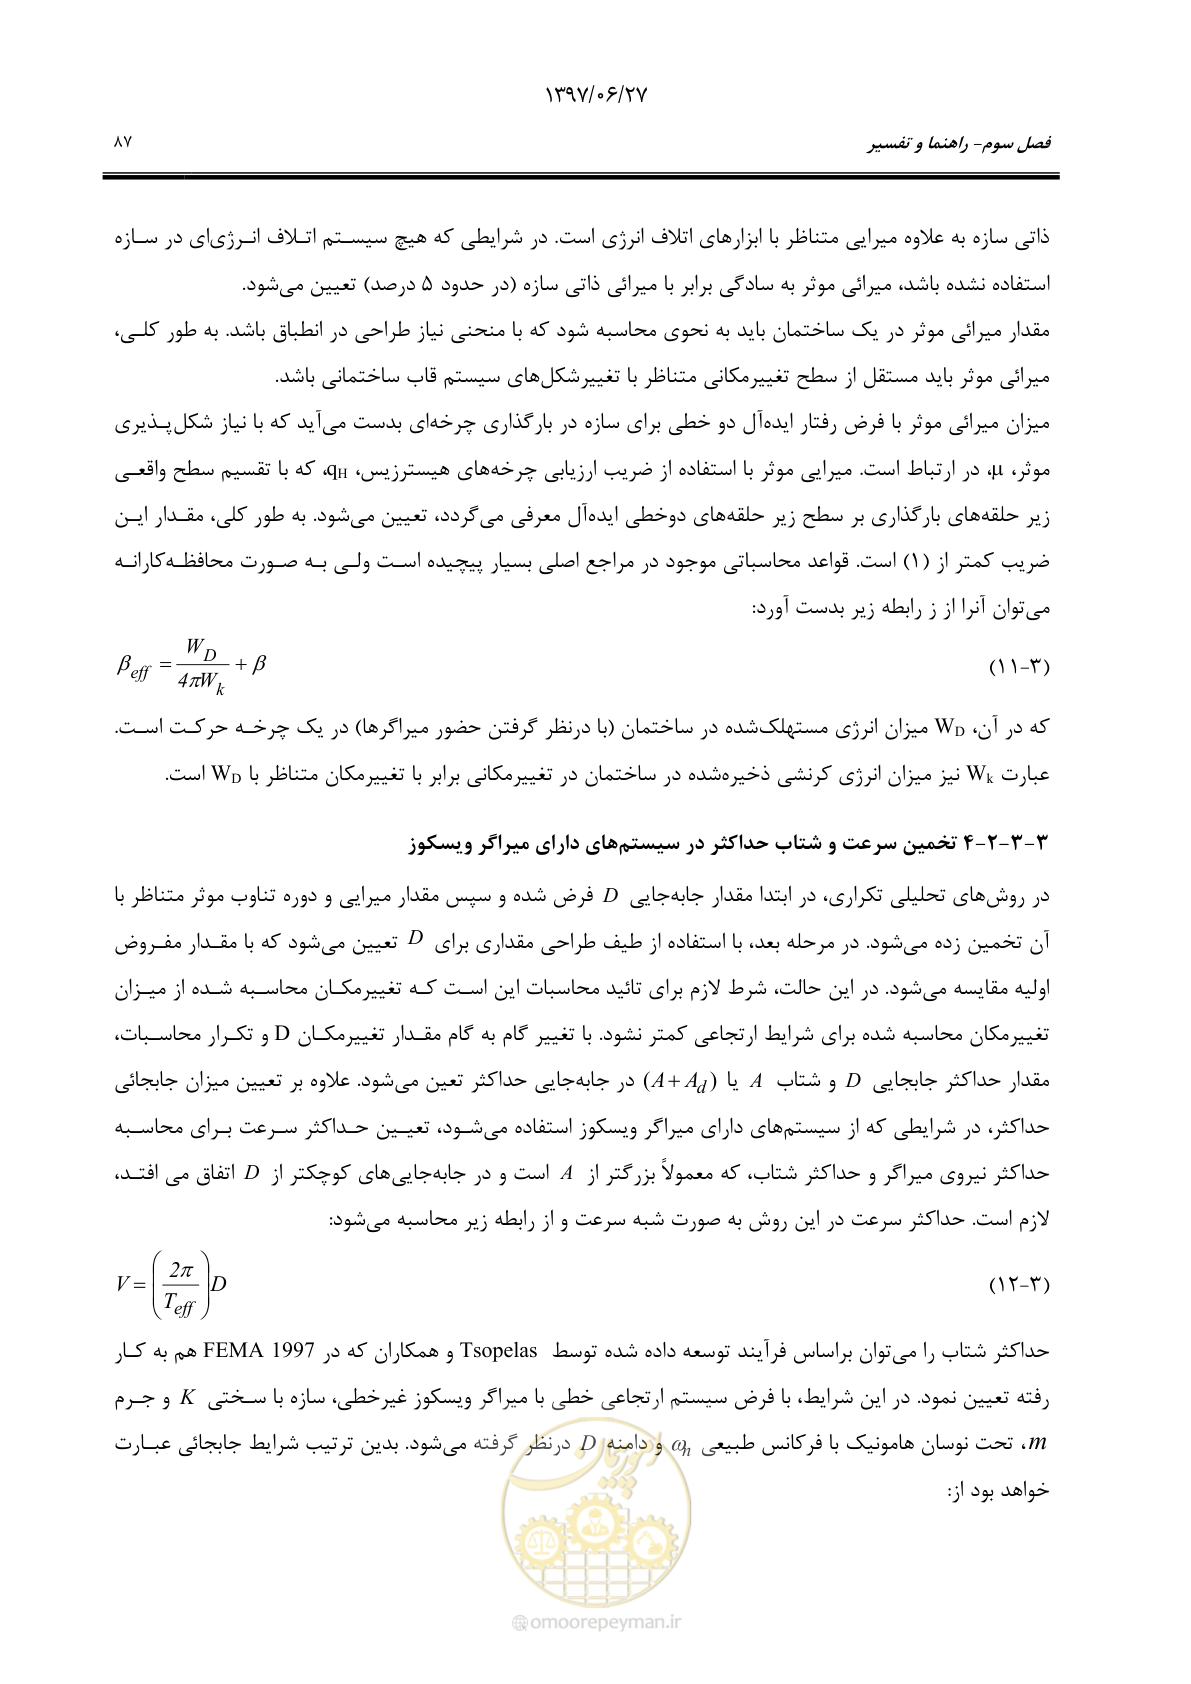 ۱۳۹۷/۰۶/۲۷
فصل سوم- راهنما و تفسیر ۸۷
ذاتی سازه به علاوه میرایی متناظر با ابزارهای اتلاف انرژی است. در شرایطی که هیچ سیستم اتلاف انرژی‌ای در سازه
استفاده نشده باشد، میرائی موثر به سادگی برابر با میرائی ذاتی سازه (در حدود ۵ درصد) تعیین می‌شود.
مقدار میرائی موثر در یک ساختمان باید به نحوی محاسبه شود که با منحنی نیاز طراحی در انطباق باشد. به طور کلی،
میرائی موثر باید مستقل از سطح تغییرمکانی متناظر با تغییرشکل‌های سیستم قاب ساختمانی باشد.
میزان میرائی موثر با فرض رفتار ایده‌آل دو خطی برای سازه در بارگذاری چرخه‌ای بدست می‌آید که با نیاز شکل‌پذیری
موثر، μ، در ارتباط است. میرایی موثر با استفاده از ضریب ارزیابی چرخه‌های هیسترزیس، qH، که با تقسیم سطح واقعی
زیر حلقه‌های بارگذاری بر سطح زیر حلقه‌های دوخطی ایده‌آل معرفی می‌گردد، تعیین می‌شود. به طور کلی، مقدار این
ضریب کمتر از (۱) است. قواعد محاسباتی موجود در مراجع اصلی بسیار پیچیده است ولی به صورت محافظه‌کارانه
می‌توان آنرا از ز رابطه زیر بدست آورد:
(۳-۱۱) β_eff = W_D / 4πW_k + β
که در آن، WD میزان انرژی مستهلک‌شده در ساختمان (با درنظر گرفتن حضور میراگرها) در یک چرخه حرکت است.
عبارت Wk نیز میزان انرژی کرنشی ذخیره‌شده در ساختمان در تغییرمکانی برابر با تغییرمکان متناظر با WD است.
۳-۳-۲-۴ تخمین سرعت و شتاب حداکثر در سیستم‌های دارای میراگر ویسکوز
در روش‌های تحلیلی تکراری، در ابتدا مقدار جابه‌جایی D فرض شده و سپس مقدار میرایی و دوره تناوب موثر متناظر با
آن تخمین زده می‌شود. در مرحله بعد، با استفاده از طیف طراحی مقداری برای D تعیین می‌شود که با مقدار مفروض
اولیه مقایسه می‌شود. در این حالت، شرط لازم برای تائید محاسبات این است که تغییرمکان محاسبه شده از میزان
تغییرمکان محاسبه شده برای شرایط ارتجاعی کمتر نشود. با تغییر گام به گام مقدار تغییرمکان D و تکرار محاسبات،
مقدار حداکثر جابجایی D و شتاب A یا (A + A_d) در جابه‌جایی حداکثر تعین می‌شود. علاوه بر تعیین میزان جابجائی
حداکثر، در شرایطی که از سیستم‌های دارای میراگر ویسکوز استفاده می‌شود، تعیین حداکثر سرعت برای محاسبه
حداکثر نیروی میراگر و حداکثر شتاب، که معمولاً بزرگتر از A است و در جابه‌جایی‌های کوچکتر از D اتفاق می افتد،
لازم است. حداکثر سرعت در این روش به صورت شبه سرعت و از رابطه زیر محاسبه می‌شود:
(۳-۱۲) V = (2π / T_eff) D
حداکثر شتاب را می‌توان براساس فرآیند توسعه داده شده توسط Tsopelas و همکاران که در FEMA 1997 هم به کار
رفته تعیین نمود. در این شرایط، با فرض سیستم ارتجاعی خطی با میراگر ویسکوز غیرخطی، سازه با سختی K و جرم
m، تحت نوسان هامونیک با فرکانس طبیعی ω_n و دامنه D درنظر گرفته می‌شود. بدین ترتیب شرایط جابجائی عبارت
خواهد بود از:
امور پیمان
omoorepeyman.ir